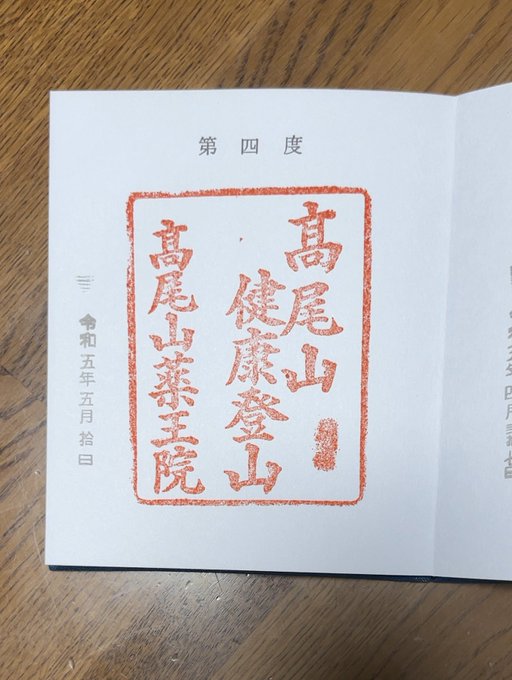 第四度
髙尾山
健康登山
髙尾山薬王院
令和五年五月拾日